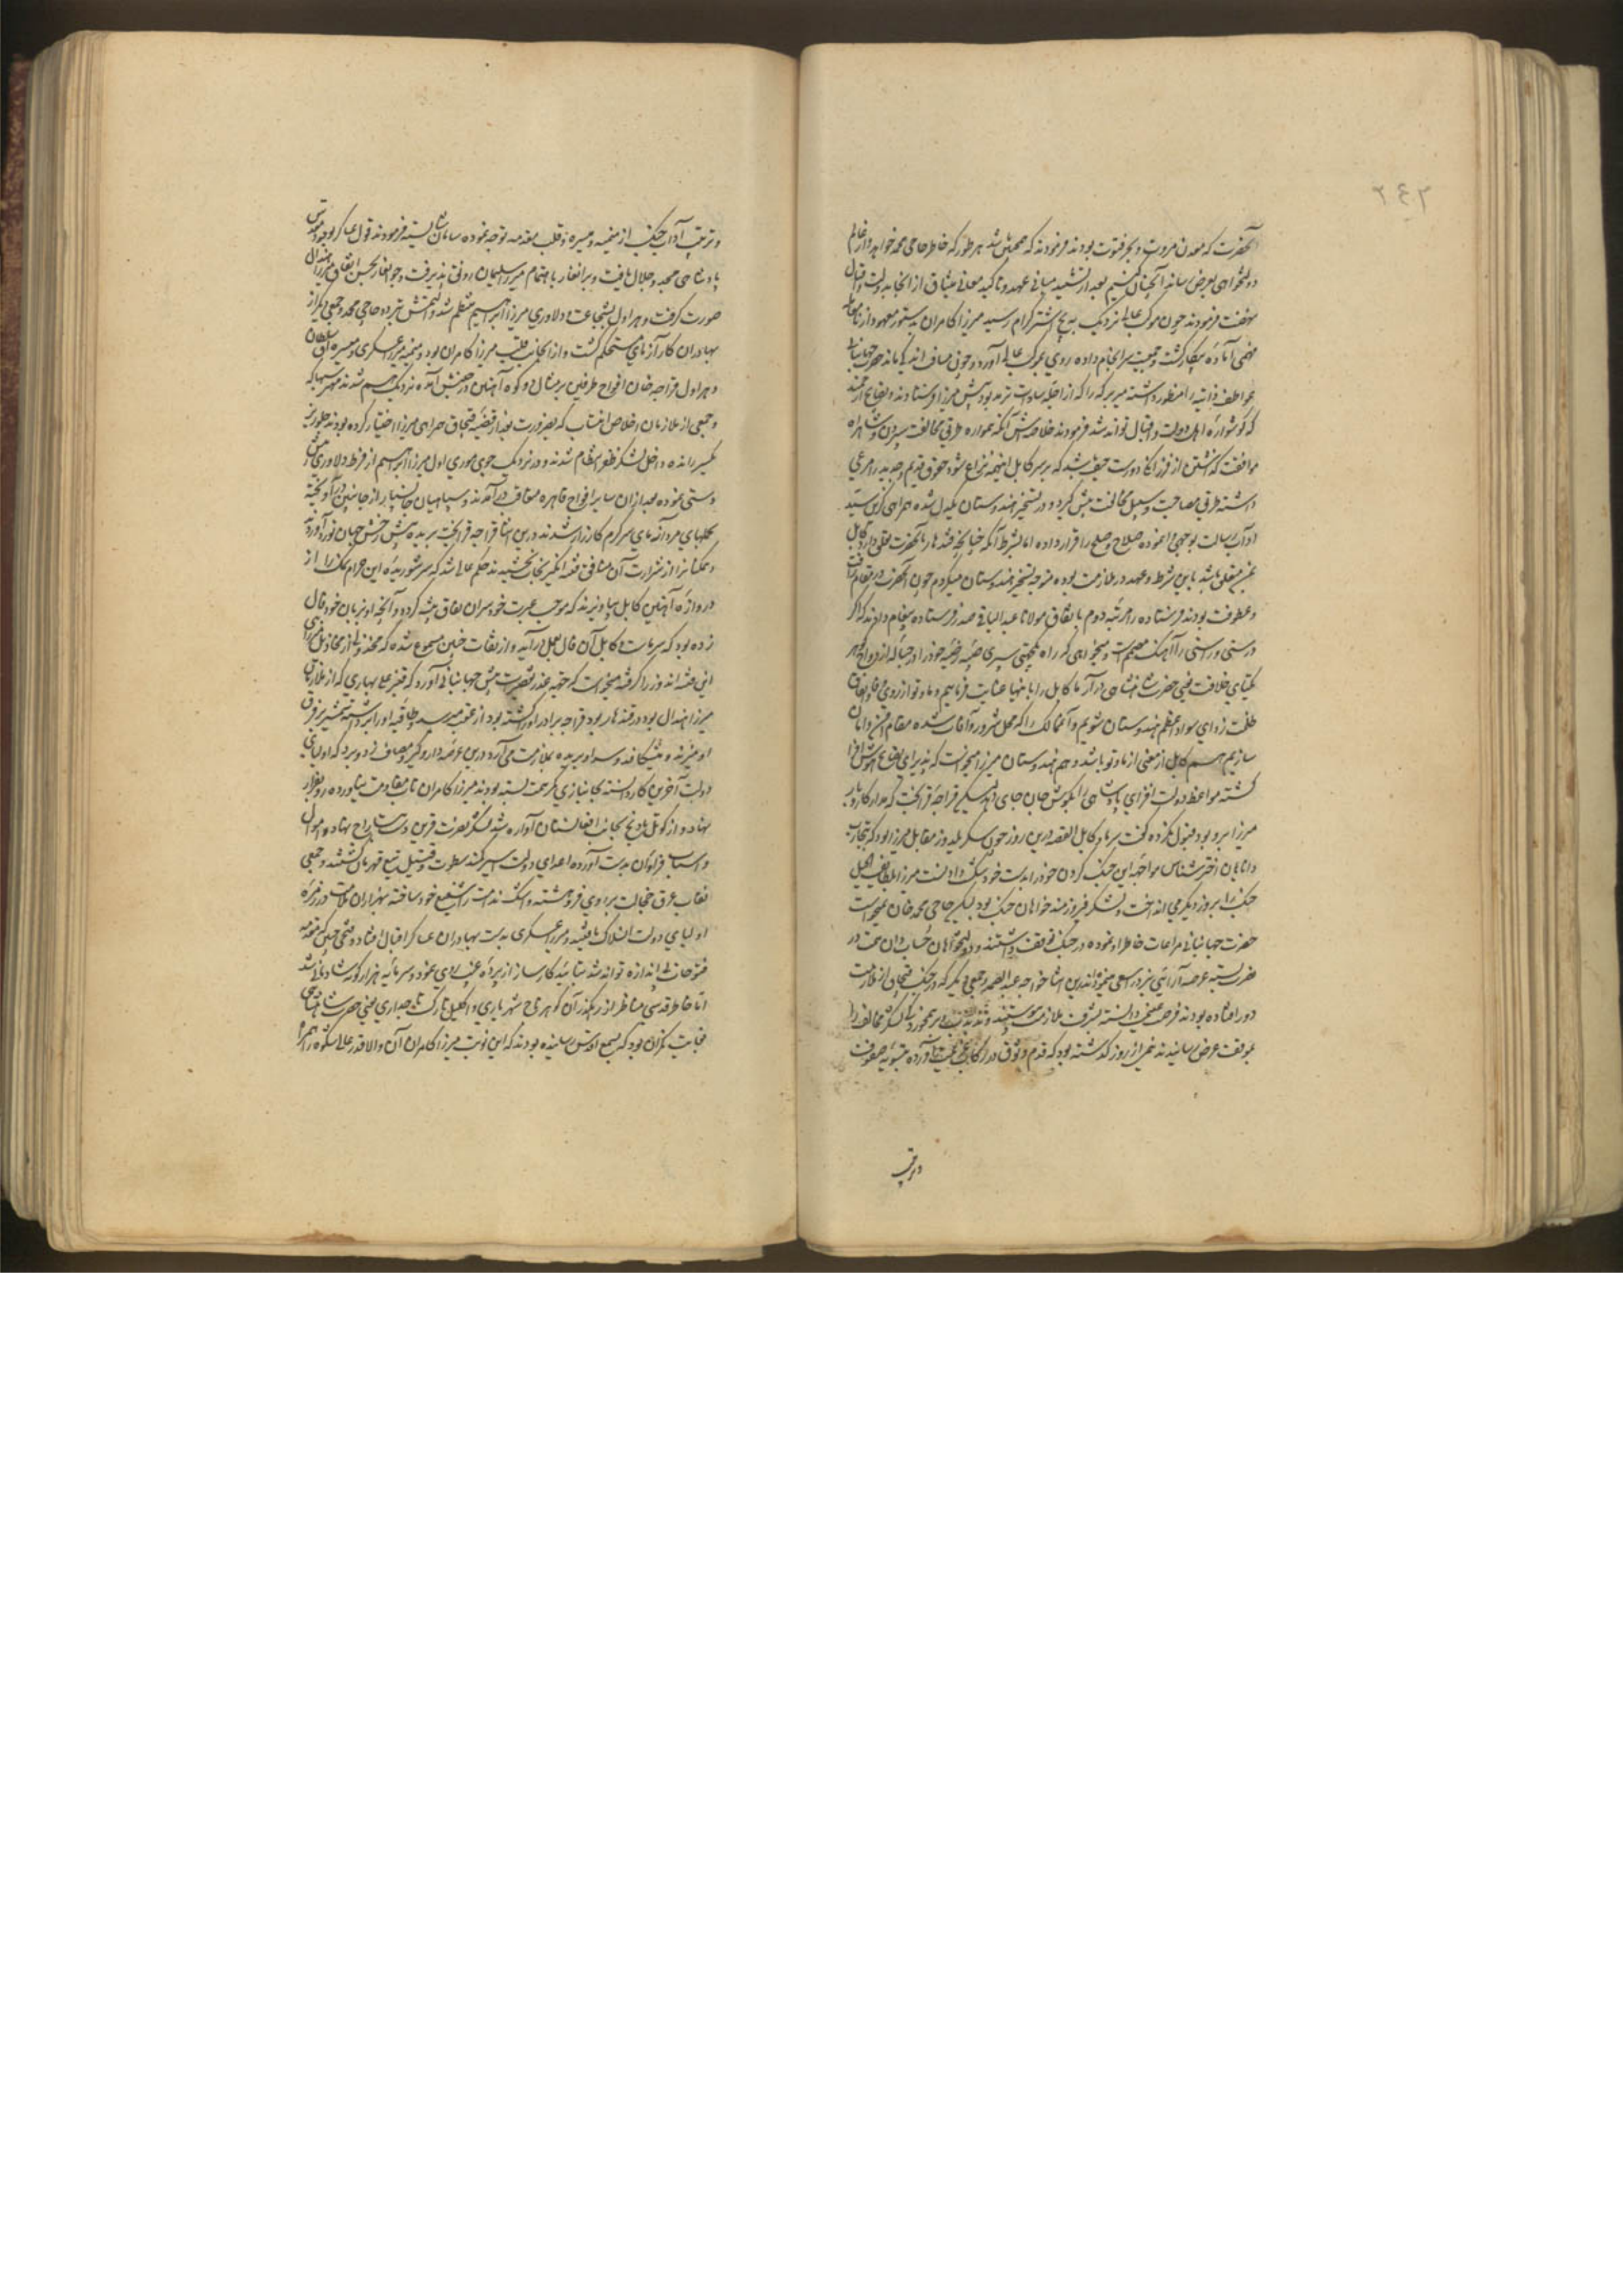 ۲۴۲
آنحضرت که معدن مروت و بحر فتوت بودند فرمودند که همچنین باشد هر طور که خاطر حاجی محمد خواهد و از عالم
دولتخواهی بعرض رساند آنچنان کنیم بعد از تشیید مبانی عهد و تاکید معانی میثاق از انجا بدولت و اقبال
نهضت فرمودند چون موکب عالی نزدیک به اشترکرام رسید میرزا کامران بدستور معهود از
آماده پیکار گشت و جمعیت سرانجام داده روی بموکب عالی آورد و چون مسافت اندک ماند حضرت جهانبانی
عواطف ذاتیه را منظور داشته میر برکه را که از اجله سادات ترمد بود پیش میرزا فرستادند و نصایح ارجمند
که گوشواره اهل دولت و اقبال تواند شد فرمودند خلاصه‌اش آنکه همواره طریق مخالفت سپردن و شاهراه
موافقت گذشتن از فرزانگی دوست حیف باشد که بر سر کابل اینهمه نزاع شود حقوق قدیم و جدید را مرعی
داشته طریق مصالحت و سبیل مخالفت پیش گیرد و در تسخیر هندوستان یکدل شده همراهی گزین سید
آداب رسالت بوجهی ادا نموده صلاح و صلح را قرار داده اما بشرط آنکه چنانچه قندهار بآنحضرت تعلق دارد کابل
بمن متعلق باشد باین شرط و عهد در ملازمت بوده متوجه تسخیر هندوستان میگردم چون آنحضرت در مقام رافت
و عطوفت بودند فرستاده را مرتبه دوم باتفاق مولانا عبد الباقی صدر فرستاده پیغام دادند که اگر
درستی و راستی را آهنگ مصمم است و میخواهی که راه یکجهتی سپری صبیه رضیه خود را در حباله ازدواج گوهر
یکتای خلافت یعنی حضرت شاهنشاهی در آر ما کابل را بانیها عنایت فرماییم و ما و تو از روی وفاق و اتفاق
ظلمت زدای سواد اعظم هندوستان شویم و آنممالک را که محل شرور و آفات شده مقام امن و امان
سازیم هم کابل از معنی از ما و تو باشد و هم هندوستان میرزا میخواست که پذیرای نصایح هوش افزا
گشته مواعظ دولت افزای پادشاهی را بگوش جان جای دهد لیکن قراجه قرابخت که مدار کار و بار
میرزا برو بود قبول نکرده گفت سر ما و کابل القصه درین روز چون سکز یلدوز مقابل میرزا بود که بتجارب
دانایان اختر شناس مواجه این جنگ کردن خود را بدست خود شکست دادنست میرزا بلطایف الحیل
جنگ را بروز دیگر می انداخت و لشکر فیروزمند خواهان جنگ بود لیکن حاجی محمد خان نمیخواست
حضرت جهانبانی مراعات خاطر او نموده در جنگ توقف داشتند و دولتخواهان کمر همت در
بسته عرصه آرایی نبرد را سعی مینمودند درین اثنا خواجه عبد الصمد و جمعی دیگر که در جنگ قبچاق از ملازمت
دور افتاده بودند فرصت غنیمت دانسته بشرف ملازمت پیوستند و تذبذب و لشکر مخالف را
بموقف عرض رسانیدند نیمی از روز گذشته بود که قدم وثوق در رکاب عزیمت آورده بتسویه صفوف
و ترتیب
و ترتیب آداب جنگ از میمنه و میسره و قلب و مقدمه توجه نموده سامان شایسته فرمودند قول عساکر بوجود مقدس
پادشاهی مجد و جلال یافت و برانغار باهتمام میرزا سلیمان رونق پذیرفت و جوانغار بحسن اتفاق میرزا هندال
صورت گرفت و هراول بشجاعت و دلاوری میرزا ابراهیم منتظم شد و التمش بتردد حاجی محمد و جمعی دیگر از
بهادران کارآزمای مستحکم گشت و از آنجانب قلب میرزا کامران بود و میمنه میرزا عسکری و میسره آق سلطان
و هراول قراجه خان افواج طرفین بر مثال دو کوه آهنین در جنبش آمده نزدیک بهم شدند
و جمعی از ملازمان اخلاص انتساب که بضرورت بعد از قضیه قبچاق همراهی میرزا اختیار کرده بودند جلوریز
یکسر رانده داخل لشکر ظفر انتظام شدند و در نزدیک جوی موری اول میرزا ابراهیم از فرط دلاوری پیش
دستی نموده بعد ازان سایر افواج قاهره متعاقب درآمدند و سپاهیان جانسپار از جانبین درآویخته
بحملهای مردآزمای سرگرم کارزار شدند درین اثنا قراجه قرابخت سر بریده پیش رخش جهان نورد آوردند
و ممکنات از شرارت آن منافق فتنه انگیز نجات بخشیدند حکم عالی شد که سر شوریده این حرام نمک را از
دروازه آهنین کابل بیاویزند که موجب عبرت خودسران نفاق پیشه گردد و آنچه او بزبان خود فال
زده بود که سر ما و کابل آن فال بعمل درآید و از ثقات چنین مسموع شده که
این فتنه اندوز را گرفته میخواست که حقیقت عذر تقصیرات پیش جهانبانی آورد که قنبر علی بهاری که از ملازمان
میرزا هندال بود و در قندهار بود قراجه برادر او را کشته بود از عقب میرسد و طاقیه او را برداشته شمشیر بر فرق
او میزند و میشکافد و سر او بریده بملازمت می آرد درین عرصه دار و گیر و مصاف نبرد که اولیای
دولت آخرین کار دانسته بجانبازی کمر همت بسته بودند میرزا کامران تاب مقاومت نیاورده رو بفرار
نهاد و از کوتل بادپج بجانب افغانستان آواره شد لشکر نصرت قرین دست بتاراج نهاد و اموال
و اسباب فراوان بدست آورده اعدای دولت اسیر کمند سطوت و قتیل تیغ قهرمان گشتند و جمعی
نقاب عرق خجالت بر روی فروهشته و اشک ندامت را شفیع خود ساخته بهزاران ملامت در زمره
اولیای دولت انسلاک یافتند و میرزا عسکری بدست بهادران عساکر اقبال افتاد و فتحی چنین که مقدمه
فتوحات بی اندازه تواند شد بتایید کارساز از پرده غیب روی نمود و سرمایه هزار گونه شادمانی شد
اما خاطر قدسی مناظر از رهگذر آن گوهر تاج شهریاری و اکلیل تارک تاجداری یعنی حضرت شاهنشاهی
بغایت نگران بود که بسمع اقدس رسانیده بودند که این نوبت میرزا کامران آن والاقدر عالی شکوه را همراه